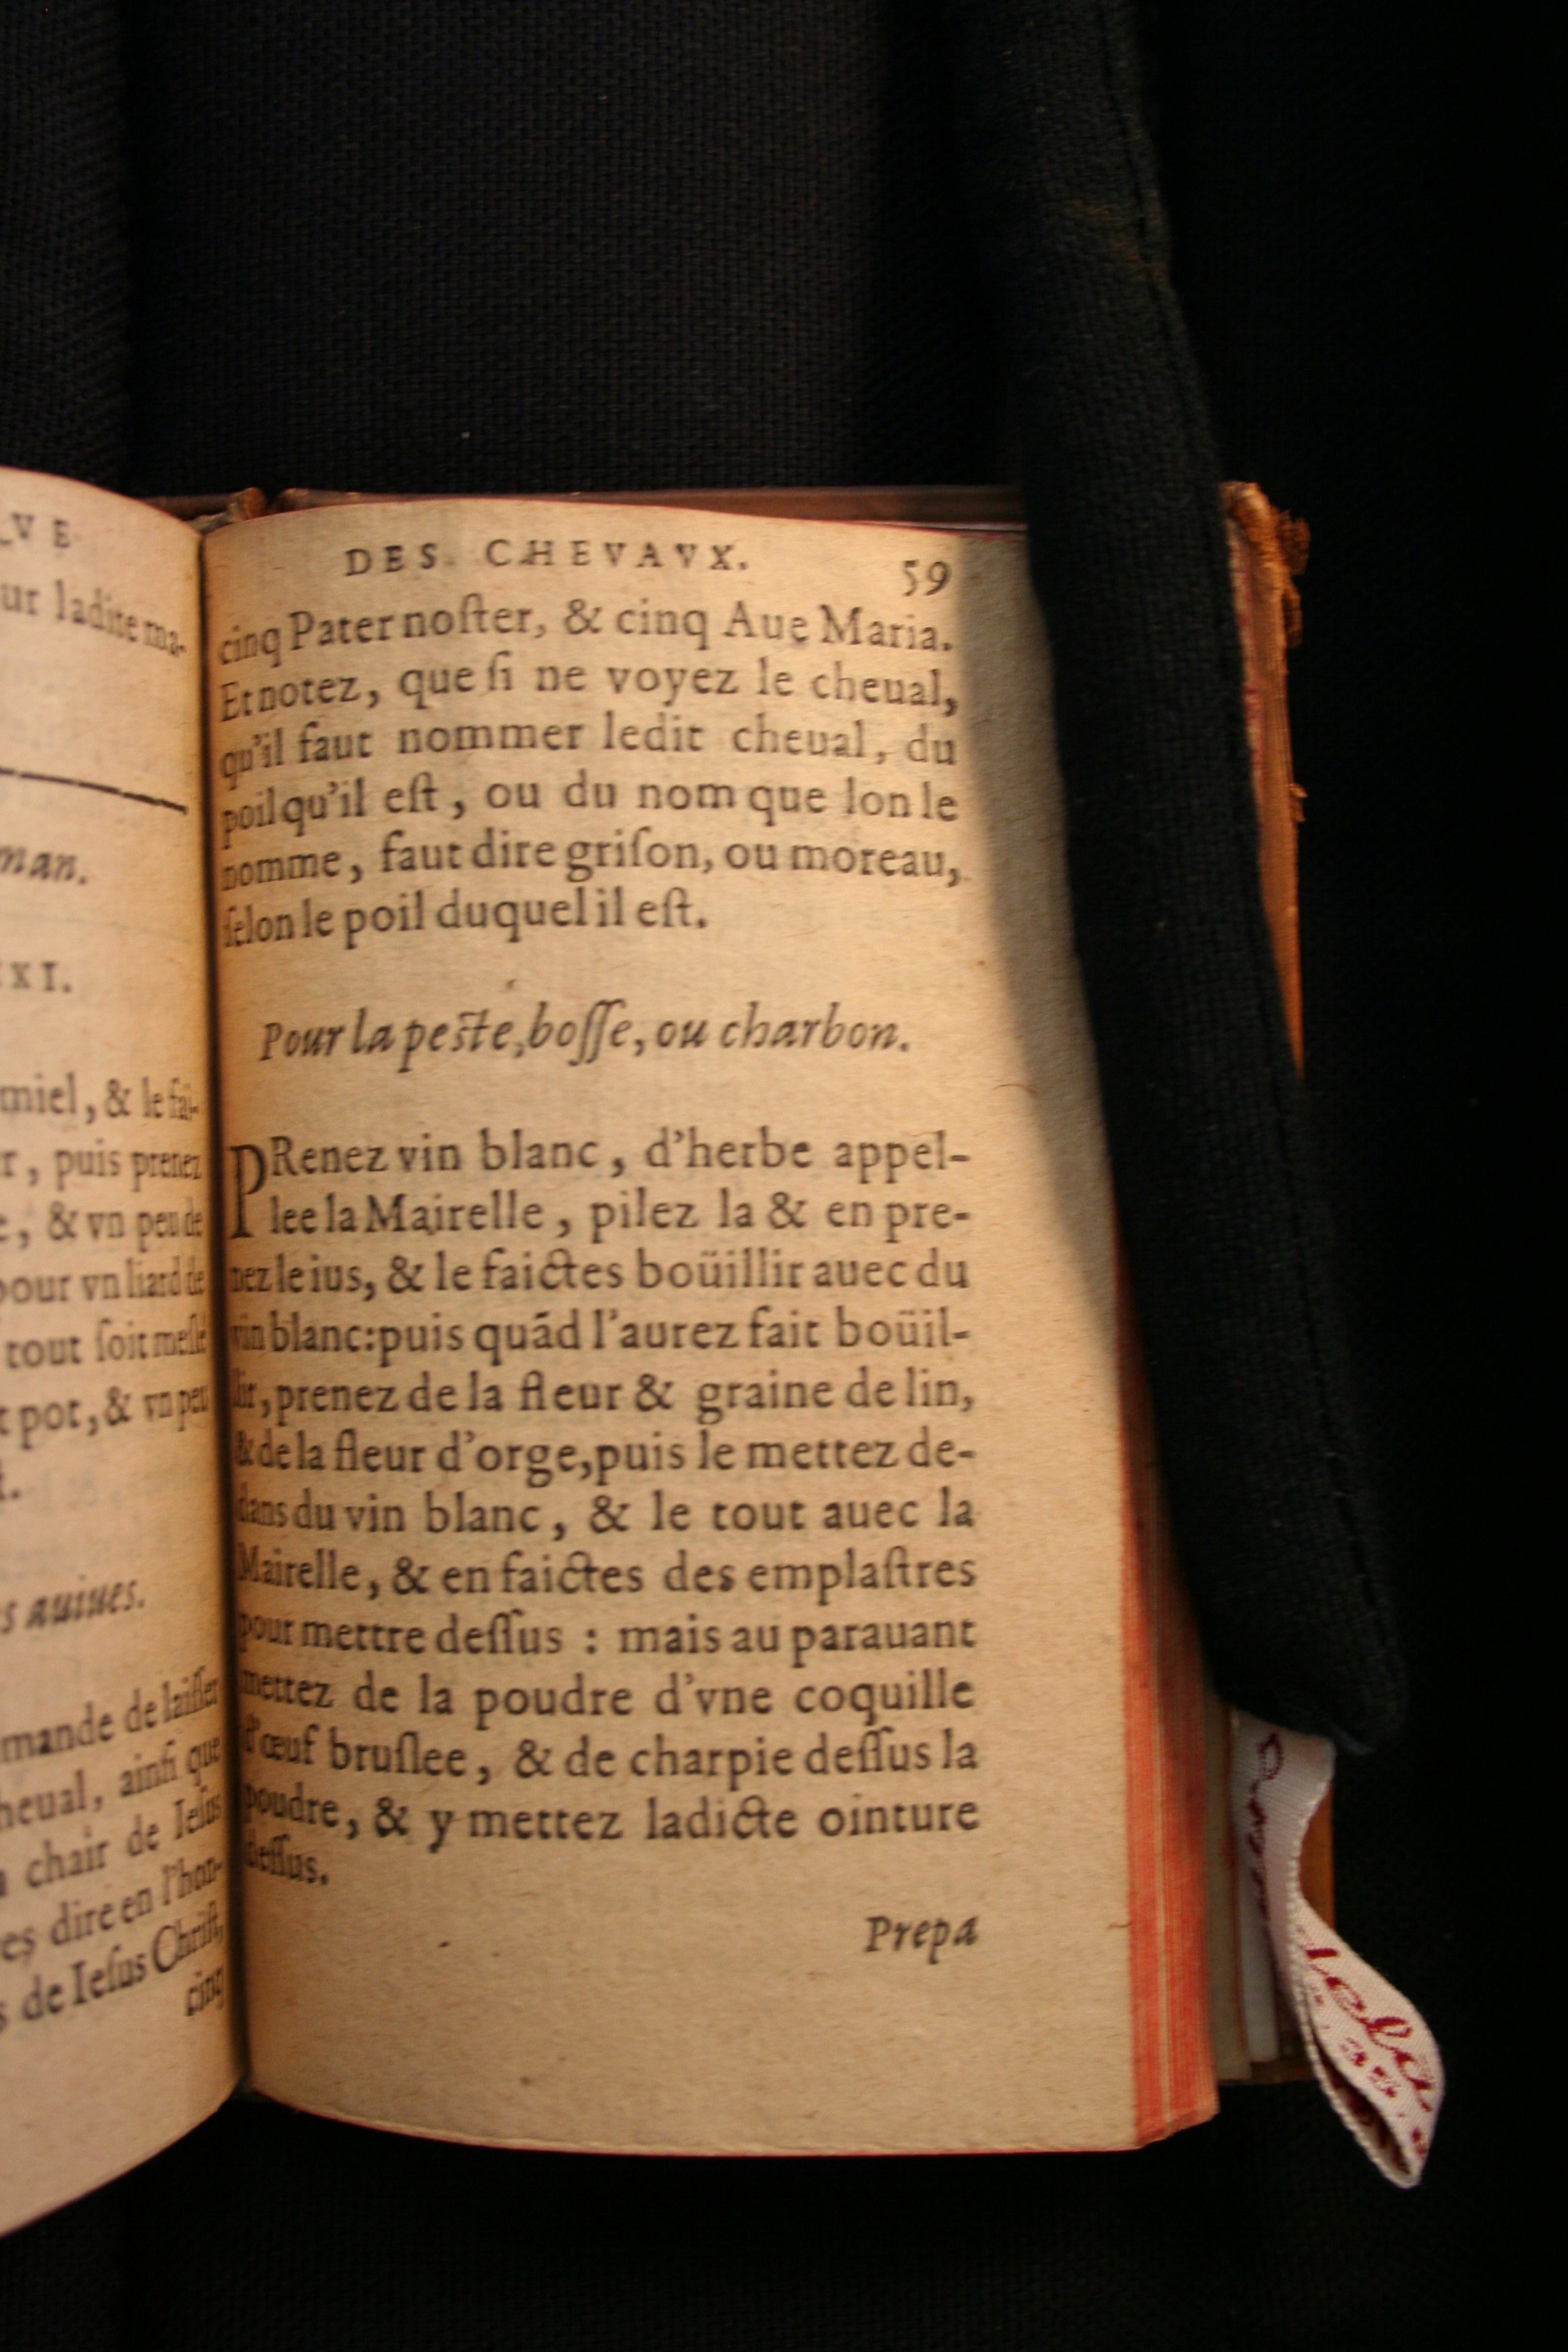 VE
ur ladite ma-
man.
XXI.
miel, & le fai-
r, puis prenez
e, & vn peu de
pour vn liard de
tout ſoit meſlé
t pot, & vn peu
s auiues.
mande de laiſſer
heual, ainſi que
chair de Ieſus
es dire en l'hon-
s de Ieſus Chriſt,
cinq
DES CHEVAVX. 59
cinq Pater noſter, & cinq Aue Maria.
Et notez, que ſi ne voyez le cheual,
qu'il faut nommer ledit cheual, du
poil qu'il eſt, ou du nom que lon le
nomme, faut dire griſon, ou moreau,
ſelon le poil duquel il eſt.
Pour la peſte, boſſe, ou charbon.
PRenez vin blanc, d'herbe appel-
lee la Mairelle, pilez la & en pre-
nez le ius, & le faictes boüillir auec du
vin blanc: puis quãd l'aurez fait boüil-
lir, prenez de la fleur & graine de lin,
& de la fleur d'orge, puis le mettez de-
dans du vin blanc, & le tout auec la
Mairelle, & en faictes des emplaſtres
pour mettre deſſus : mais au parauant
mettez de la poudre d'vne coquille
d'œuf bruſlee, & de charpie deſſus la
poudre, & y mettez ladicte ointure
deſſus.
Prepa